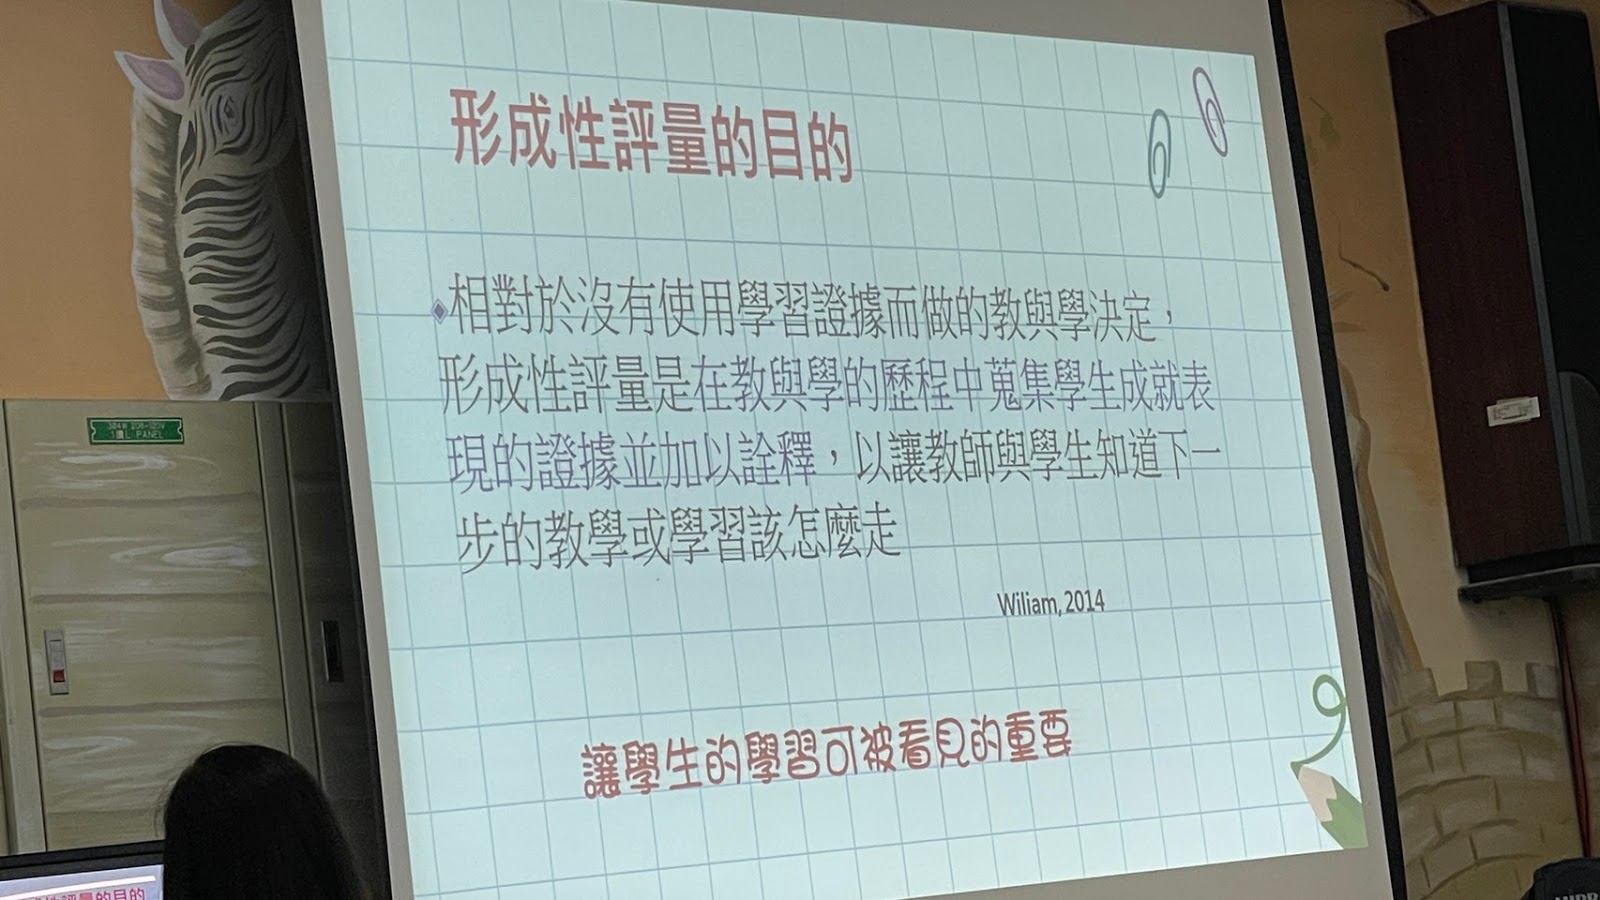 形成性評量的目的
相對於沒有使用學習證據而做的教與學決定，
形成性評量是在教與學的歷程中蒐集學生成就表
現的證據並加以詮釋，以讓教師與學生知道下一
步的教學或學習該怎麼走
Wiliam, 2014
讓學生的學習可被看見的重要
性評量的目的